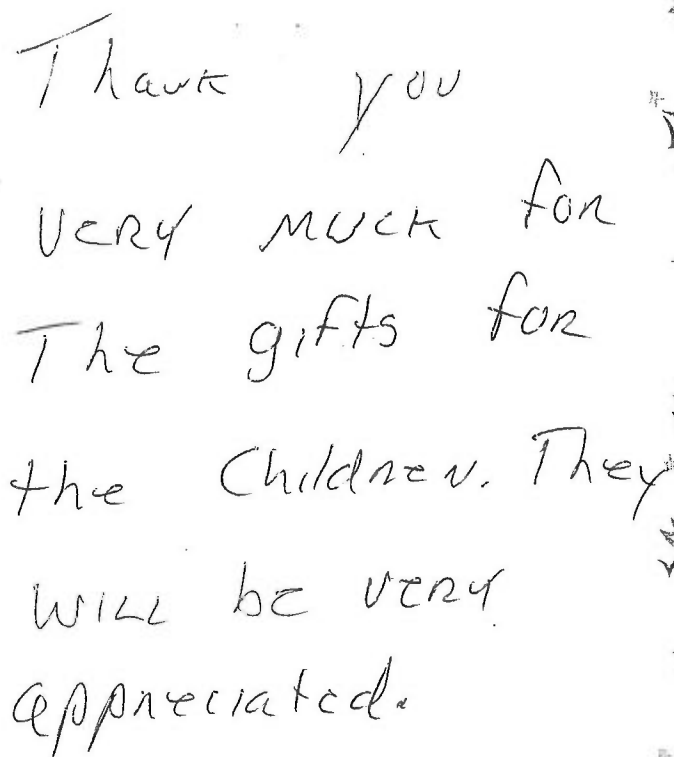 Thank you
very much for
The gifts for
the Children. They
will be very
appreciated.